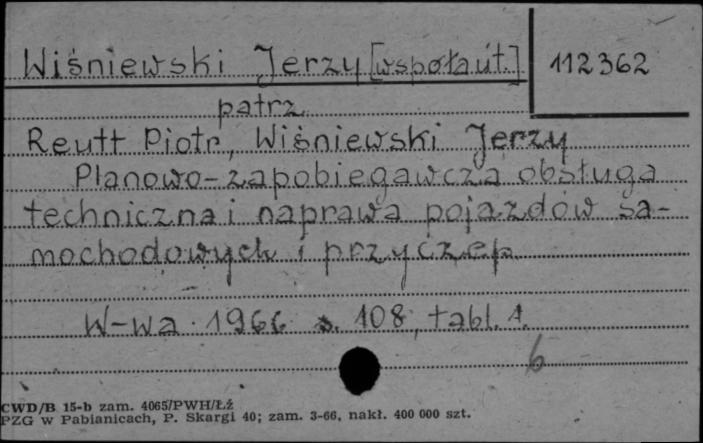 Wiśniewski Jerzy [współaut.] 112362
patrz
Reutt Piotr, Wiśniewski Jerzy
Planowo-zapobiegawcza obsługa
techniczna i naprawa pojazdów sa-
mochodowych i przyczep
W-wa 1966 s. 108, tabl. 1.
6
CWD/B 15-b zam. 4065/PWH/Łź
PZG w Pabianicach, P. Skargi 40; zam. 3-66, nakł. 400 000 szt.